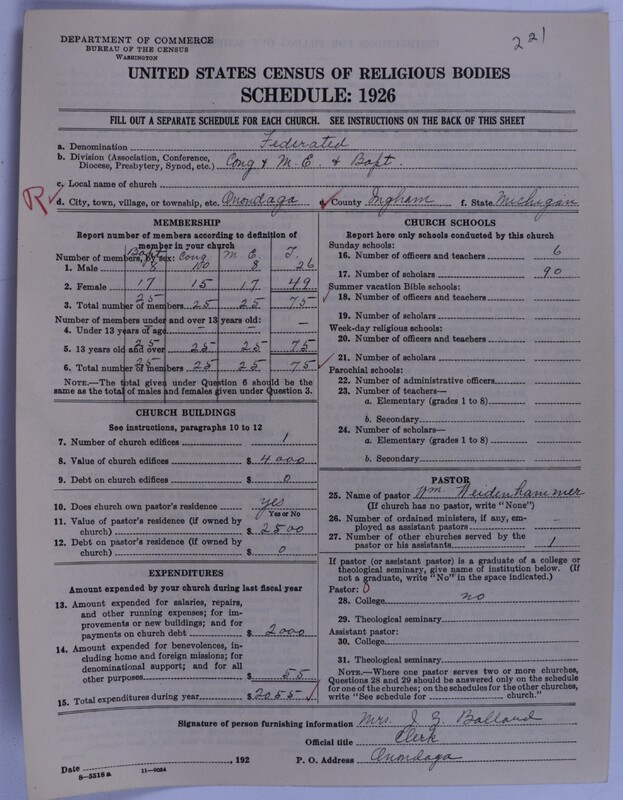 DEPARTMENT OF COMMERCE
BUREAU OF THE CENSUS
WASHINGTON
221
UNITED STATES CENSUS OF RELIGIOUS BODIES
SCHEDULE: 1926
FILL OUT A SEPARATE SCHEDULE FOR EACH CHURCH. SEE INSTRUCTIONS ON THE BACK OF THIS SHEET
a. Denomination Federated
b. Division (Association, Conference, Diocese, Presbytery, Synod, etc.) Cong & M.E. & Bapt.
c. Local name of church
R d. City, town, village, or township, etc. Onondaga e. County Ingham f. State Michigan
MEMBERSHIP
Report number of members according to definition of member in your church
Number of members, by sex: Bapt Cong M.E. T.
1. Male 8 10 8 26
2. Female 17 15 17 49
3. Total number of members 25 25 25 75
Number of members under and over 13 years old:
4. Under 13 years of age – – – –
5. 13 years old and over 25 25 25 75
6. Total number of members 25 25 25 75
NOTE.—The total given under Question 6 should be the same as the total of males and females given under Question 3.
CHURCH BUILDINGS
See instructions, paragraphs 10 to 12
7. Number of church edifices 1
8. Value of church edifices $ 4000
9. Debt on church edifices $ 0
10. Does church own pastor's residence? yes
Yes or No
11. Value of pastor's residence (if owned by church) $ 2500
12. Debt on pastor's residence (if owned by church) $ 0
EXPENDITURES
Amount expended by your church during last fiscal year
13. Amount expended for salaries, repairs, and other running expenses; for improvements or new buildings; and for payments on church debt $ 2000
14. Amount expended for benevolences, including home and foreign missions; for denominational support; and for all other purposes $ 55
15. Total expenditures during year $ 2055
CHURCH SCHOOLS
Report here only schools conducted by this church
Sunday schools:
16. Number of officers and teachers 6
17. Number of scholars 90
Summer vacation Bible schools:
18. Number of officers and teachers
19. Number of scholars
Week-day religious schools:
20. Number of officers and teachers
21. Number of scholars
Parochial schools:
22. Number of administrative officers
23. Number of teachers—
a. Elementary (grades 1 to 8)
b. Secondary
24. Number of scholars—
a. Elementary (grades 1 to 8)
b. Secondary
PASTOR
25. Name of pastor Wm Weidenhammer
(If church has no pastor, write "None")
26. Number of ordained ministers, if any, employed as assistant pastors –
27. Number of other churches served by the pastor or his assistants 1
If pastor (or assistant pastor) is a graduate of a college or theological seminary, give name of institution below. (If not a graduate, write "No" in the space indicated.)
Pastor: 0
28. College no
29. Theological seminary
Assistant pastor:
30. College
31. Theological seminary
NOTE.—Where one pastor serves two or more churches, Questions 28 and 29 should be answered only on the schedule for one of the churches; on the schedules for the other churches, write "See schedule for church."
Signature of person furnishing information Mrs. J. G. Balland
Official title Clerk
Date , 192 P. O. Address Onondaga
8—5518a 11—9034